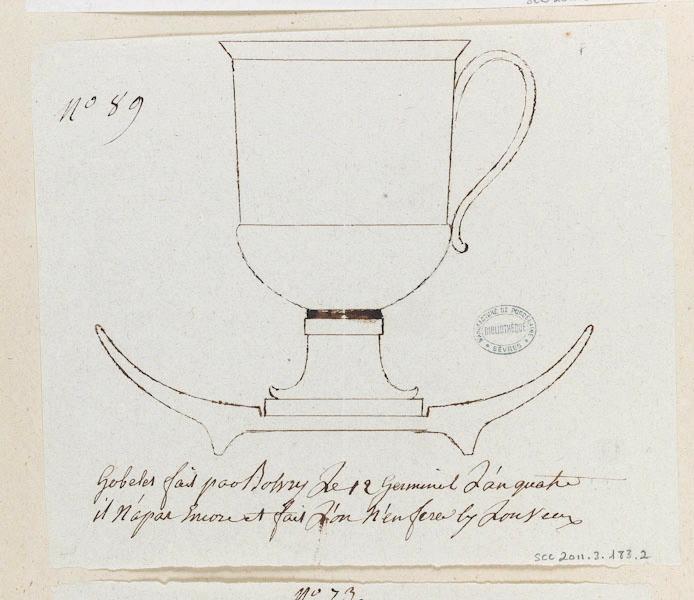 No 89
MANUFACTURE DE PORCELAINE
BIBLIOTHÈQUE
* SÈVRES *
Gobelet fait par Bolvry Le 12 Germinel L'an quatre
il N'a pas Encore et fait L'on N'en fera
SCC 2011.3.183.2
No 73.